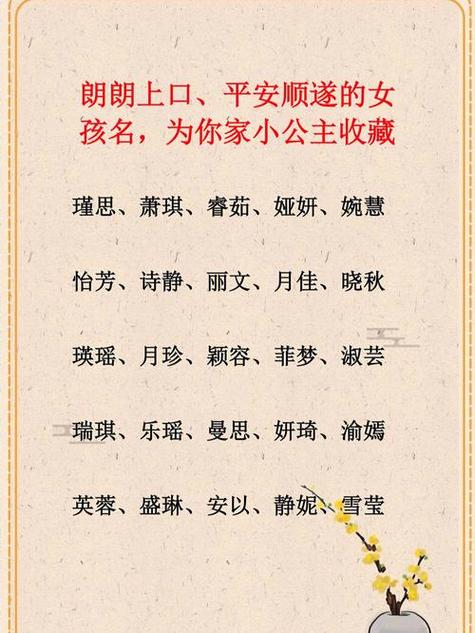 朗朗上口、平安顺遂的女
孩名，为你家小公主收藏
瑾思、萧琪、睿茹、娅妍、婉慧
怡芳、诗静、丽文、月佳、晓秋
瑛瑶、月珍、颖容、菲梦、淑芸
瑞琪、乐瑶、曼思、妍琦、渝嫣
英蓉、盛琳、安以、静妮、雪莹